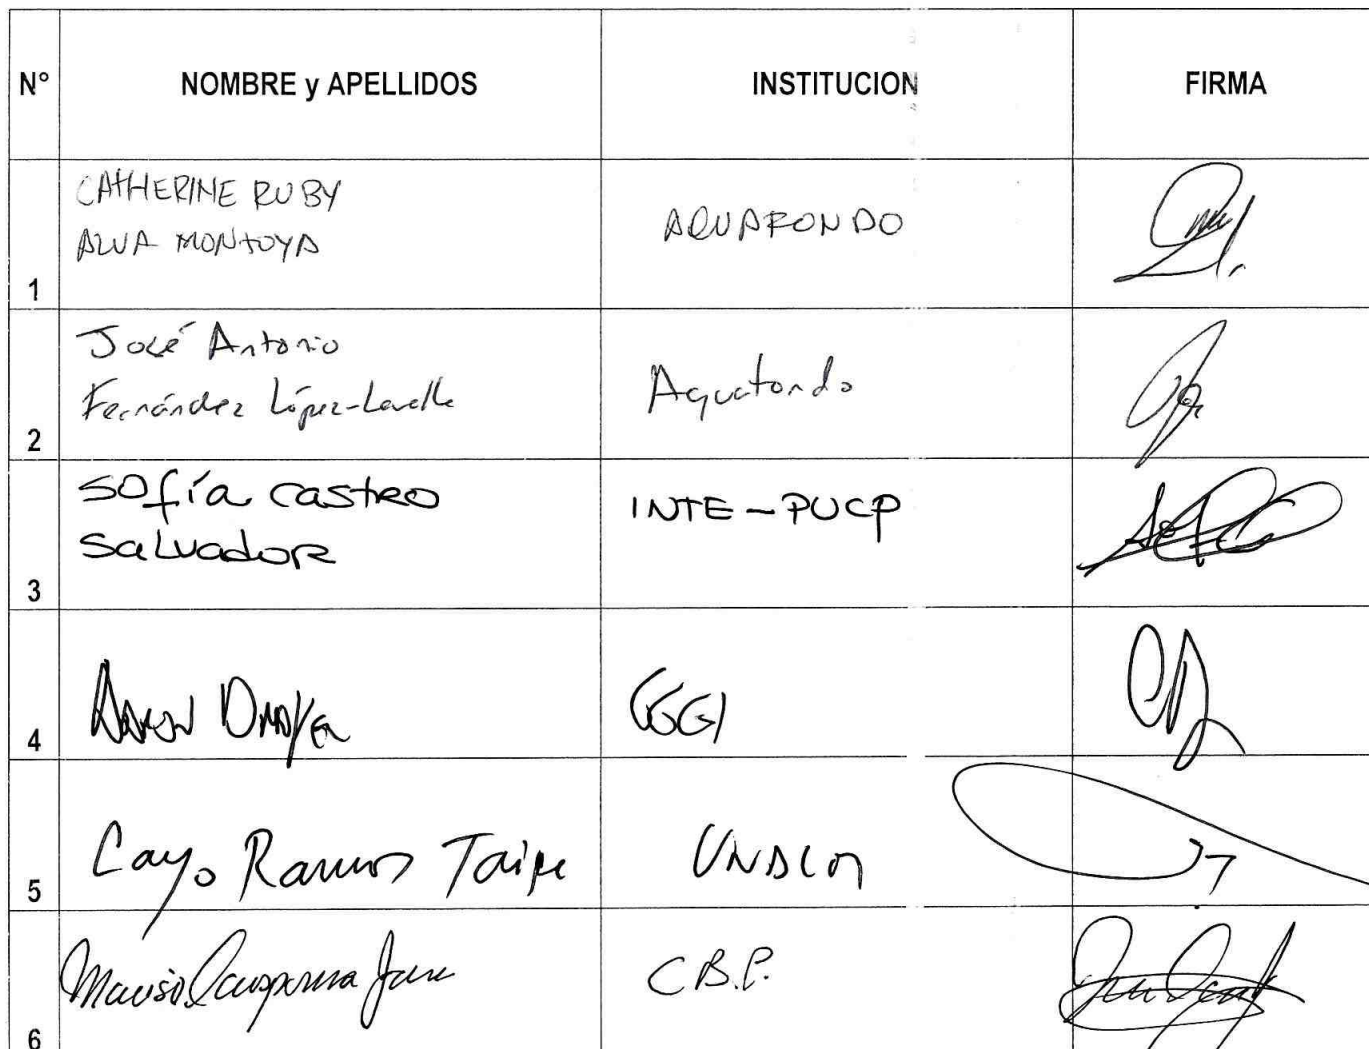 N° NOMBRE y APELLIDOS INSTITUCION FIRMA
CATHERINE RUBY
ALVA MONTOYA AQUAFONDO
1
José Antonio
Fernández López-Lavalle Aquafondo
2
Sofía Castro INTE-PUCP
Salvador
3
4 GGGI
Cayo Ramos Taipe UNALM
5
C.B.P.
6